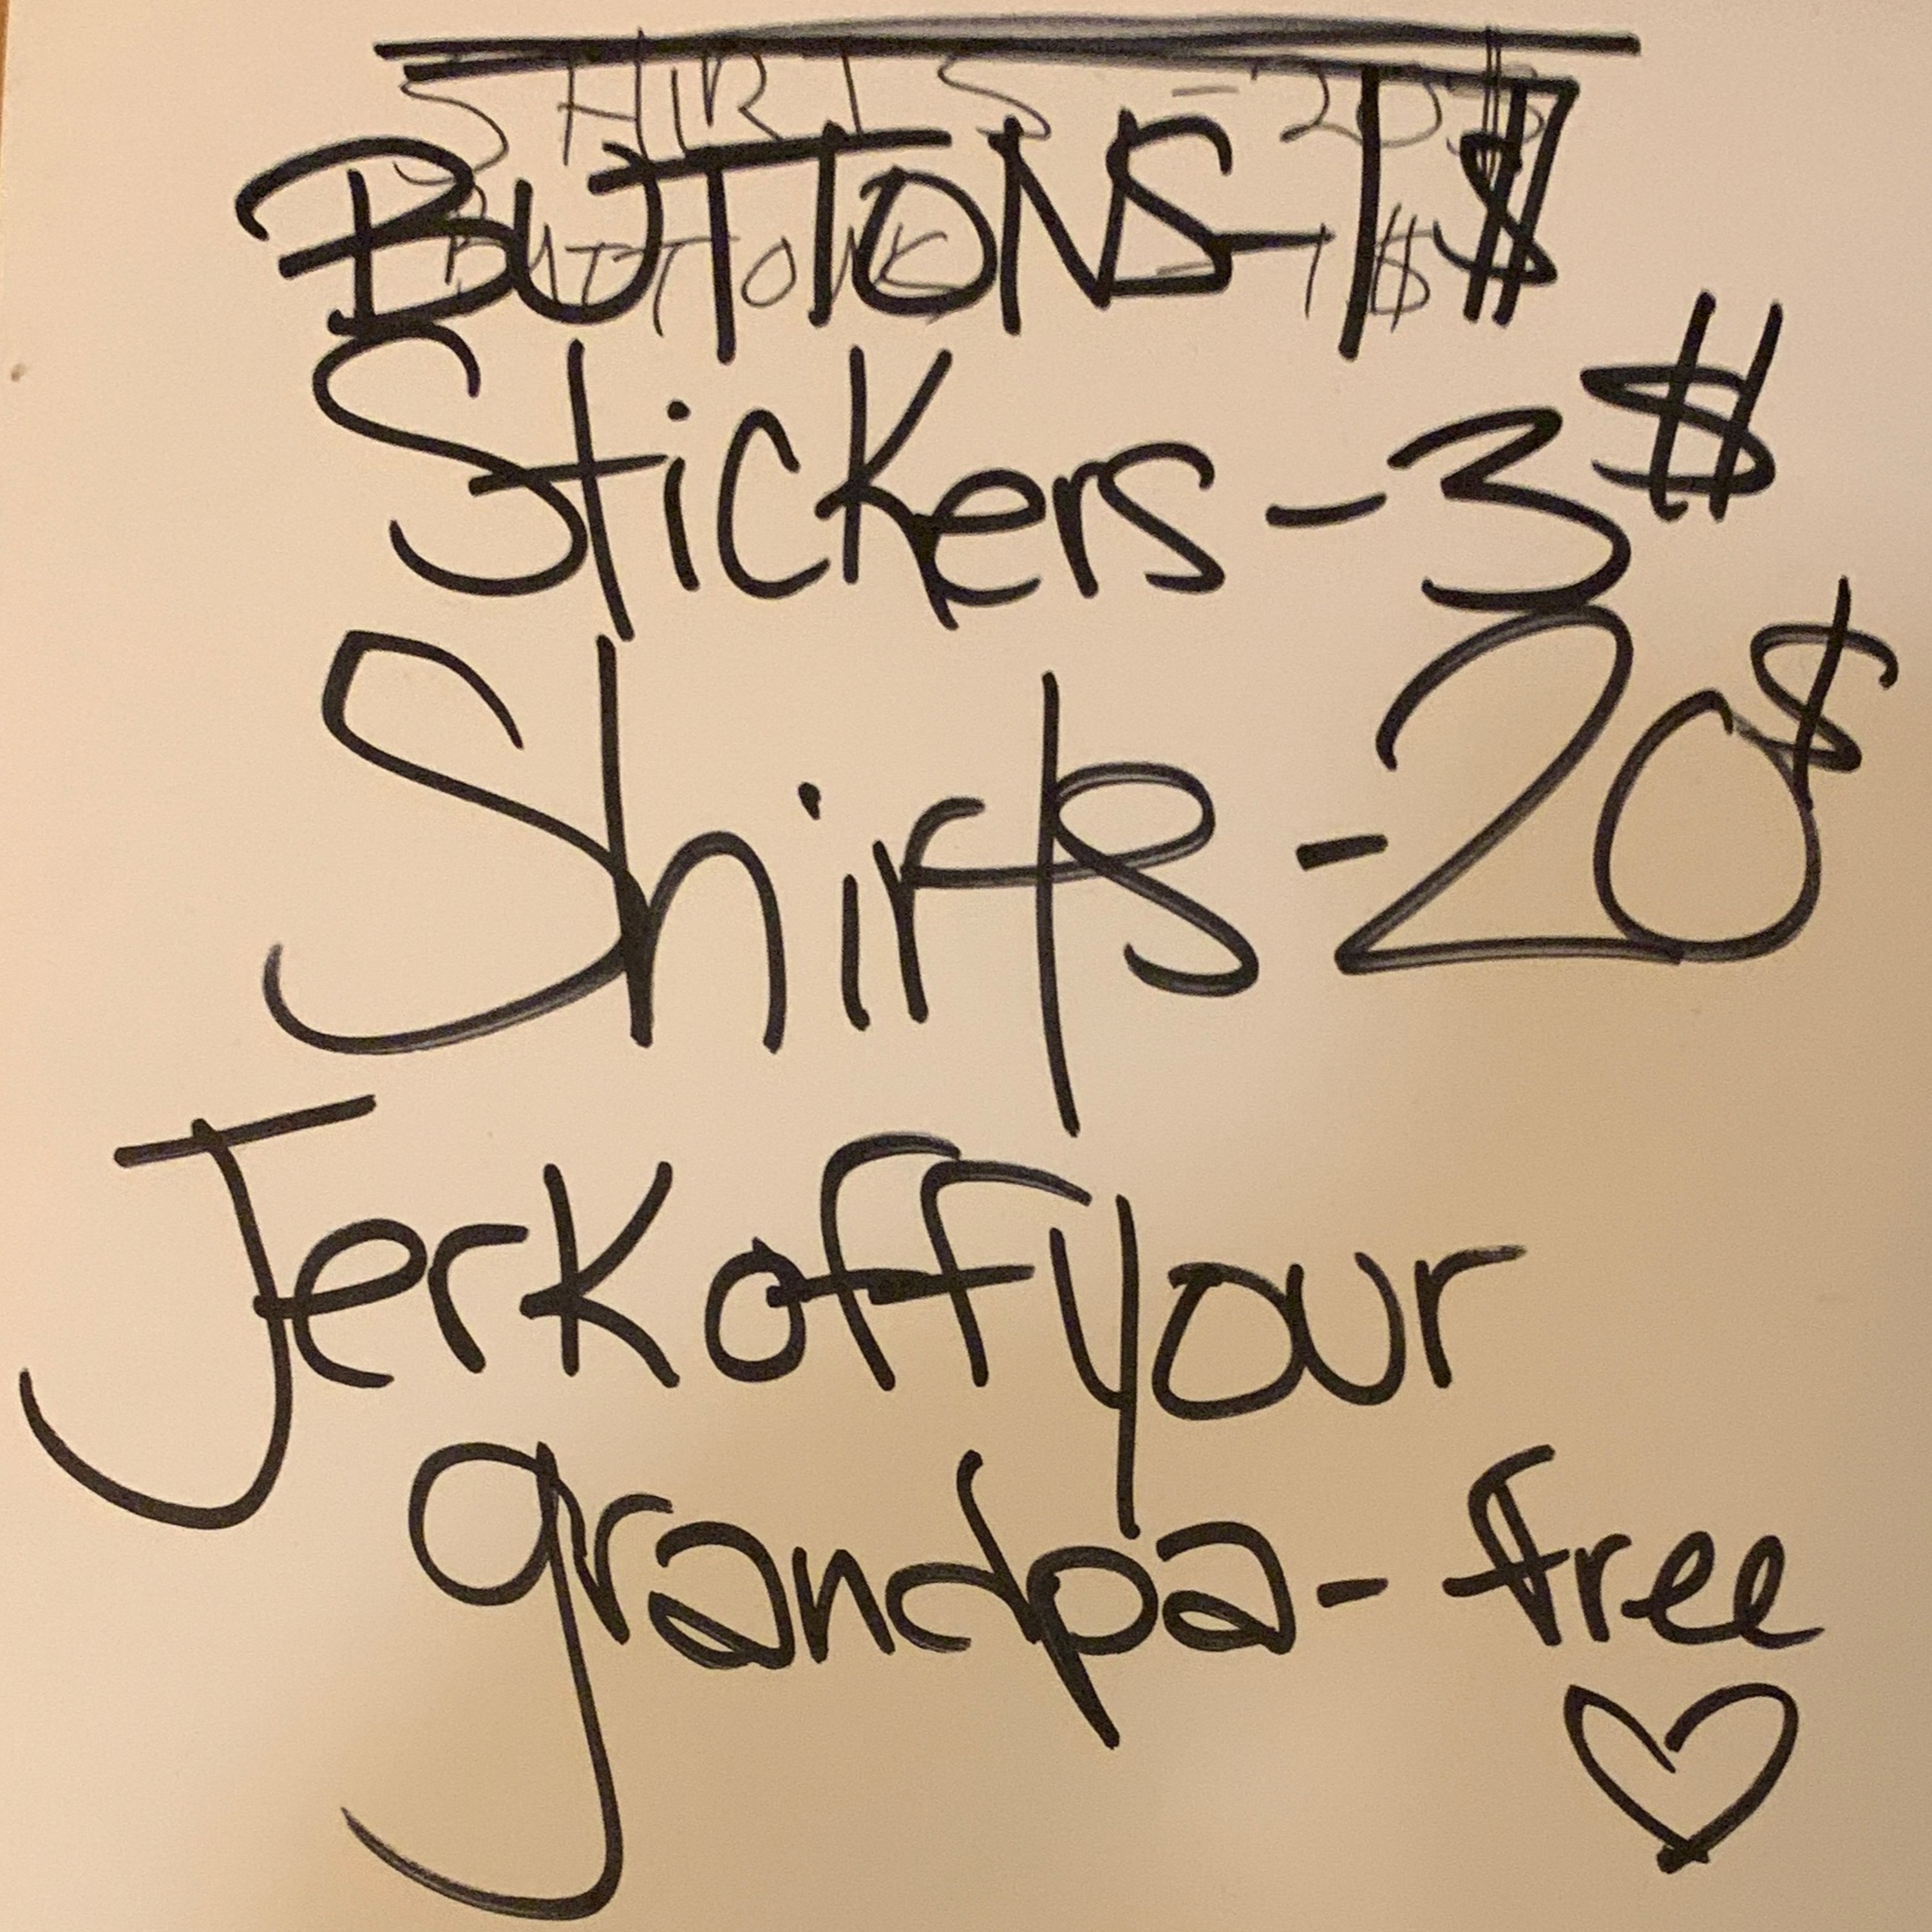 SHIRTS - 20$
BUTTONS - 1$
BUTTONS - 1$
Stickers - 3$
Shirts - 20$
Jerk off your
grandpa - free